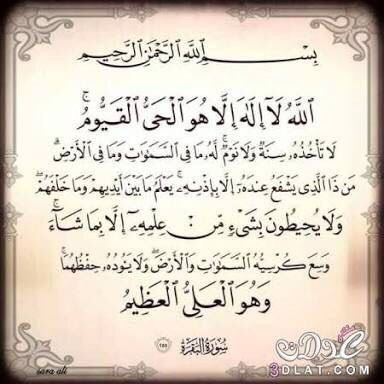 بِسْمِ اللَّهِ الرَّحْمَٰنِ الرَّحِيمِ
اللَّهُ لَا إِلَٰهَ إِلَّا هُوَ الْحَيُّ الْقَيُّومُ ۚ
لَا تَأْخُذُهُ سِنَةٌ وَلَا نَوْمٌ ۚ لَهُ مَا فِي السَّمَاوَاتِ وَمَا فِي الْأَرْضِ ۗ
مَن ذَا الَّذِي يَشْفَعُ عِندَهُ إِلَّا بِإِذْنِهِ ۚ يَعْلَمُ مَا بَيْنَ أَيْدِيهِمْ وَمَا خَلْفَهُمْ ۖ
وَلَا يُحِيطُونَ بِشَيْءٍ مِّنْ عِلْمِهِ إِلَّا بِمَا شَاءَ ۚ
وَسِعَ كُرْسِيُّهُ السَّمَاوَاتِ وَالْأَرْضَ ۖ وَلَا يَئُودُهُ حِفْظُهُمَا ۚ
وَهُوَ الْعَلِيُّ الْعَظِيمُ
سُورَةُ البَقَرَة ٢٥٥
sara ali
عدلات
3DLAT.COM